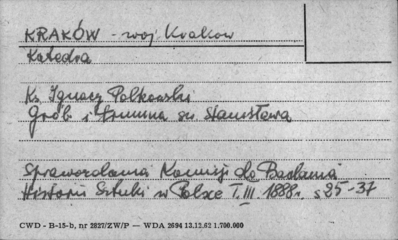 KRAKÓW - woj Kraków
Katedra
Ks. Ignacy Polkowski
Grób i trumna św Stanisława
Sprawozdania Komisji do Badania
Historii Sztuki w Polsce T. III. 1888r. s 25-37
CWD - B-15-b, nr 2827/ZW/P — WDA 2694 13.12.62 1.700.000